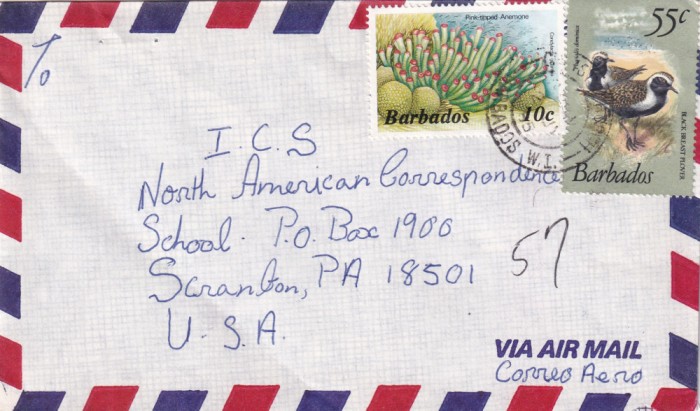 To
Pink-tipped Anemone
Barbados 10c
55c
BLACK BREAST PLOVER
Barbados
BARBADOS W.I.
I.C.S
North American Correspondence
School. P.O. Box 1900
Scranton, PA 18501
U.S.A.
57
VIA AIR MAIL
Correo Aereo